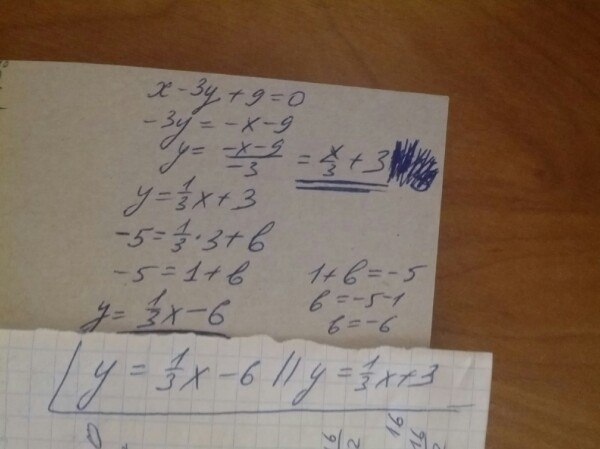 x - 3y + 9 = 0
-3y = -x - 9
y = \frac{-x-9}{-3} = \frac{x}{3} + 3
y = \frac{1}{3}x + 3
-5 = \frac{1}{3} · 3 + b
-5 = 1 + b
1 + b = -5
b = -5 - 1
b = -6
y = \frac{1}{3}x - 6
y = \frac{1}{3}x - 6 || y = \frac{1}{3}x + 3
0
16
16